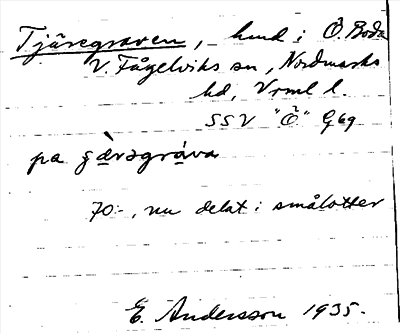 Tjäregraven, hmd i Ö. Boda
V. Fågelviks sn, Nordmarks
hd, Vrml l.
SSV "Ö" G69
pa
70:-, nu delat i smålotter
E. Andersson 1935.